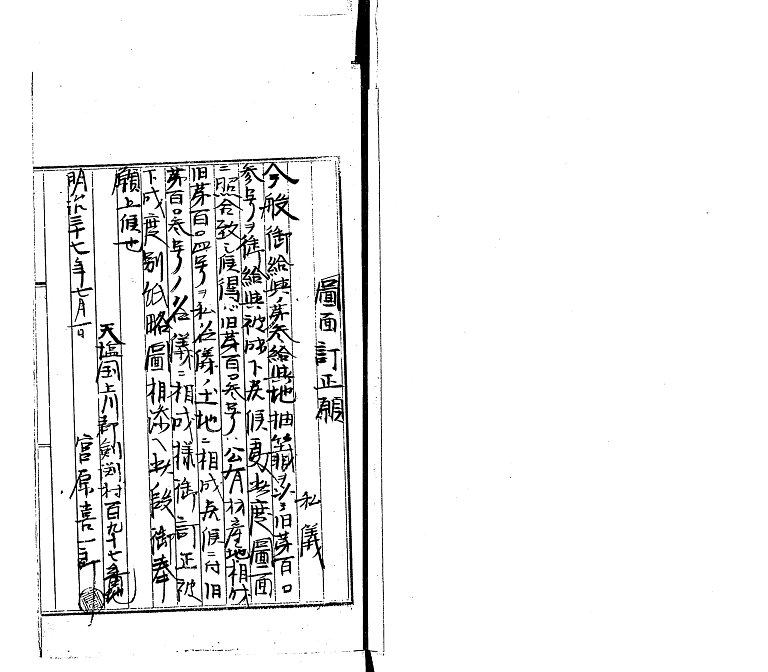 圖面訂正願
私儀
今般御給與ノ第参給與地抽籤ヲ以テ旧第百〇
参号ヲ御給與被成下候更ニ此度圖面
ニ照合致シ度得ハ旧第百〇参号ハ公有財産地ニ相成
旧第百〇四号ヲ私名儀ノ土地ニ相成候ニ付旧
第百〇参号ノ名儀ニ相成様御訂正被
下成度別紙略圖相添ヘ此段御奉
願上候也
明治三十七年七月一日
天塩国上川郡剣淵村百九十七番地
宮原喜一郎